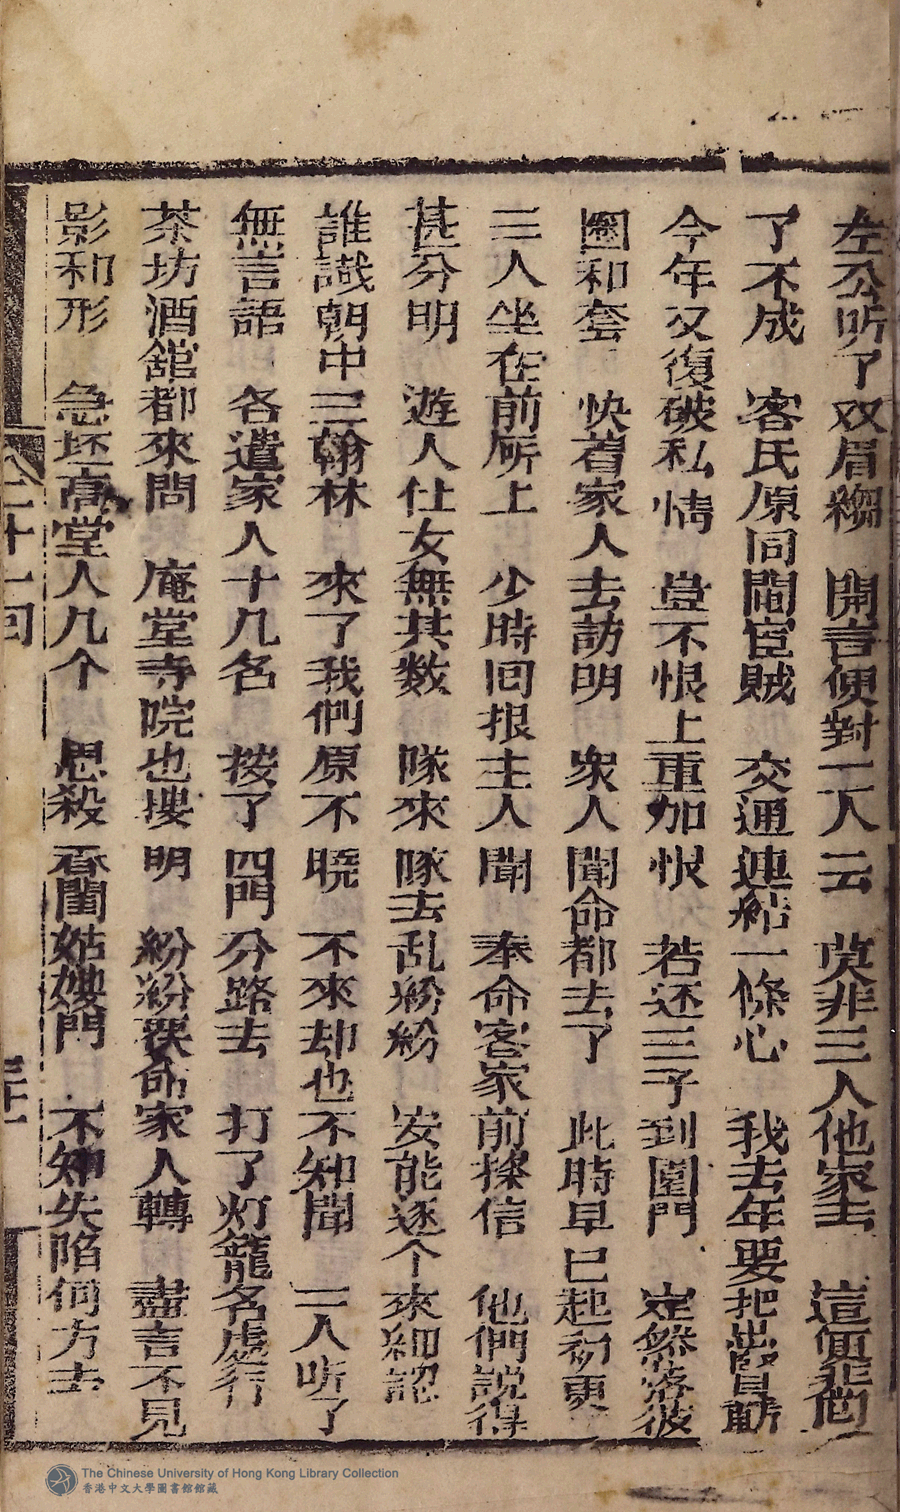 左公听了双眉縐 開言便對二人云 莫非三人他家去 這便非他
了不成 客氏原同閹宦賊 交通連結一條心 我去年要把
今年又復破私情 豈不恨上重加恨 若还三子到園門 定然落彼
圈和套 快着家人去訪明 衆人聞命都去了 此時早已起初更
三人坐在前所上 少時回报主人聞 奉命客家前探信 他們說得
甚分明 遊人仕女無其数 隊來隊去乱紛紛 安能逐个來細認
誰識朝中三翰林 來了我們原不曉 不來却也不知聞 二人听了
無言語 各遣家人十几名 按了四門分路去 打了灯籠各處行
茶坊酒舘都來問 庵堂寺院也搜明 紛紛覆命家人轉 盡言不見
影和形 急坯高堂人几个 思殺香閨姑嫂門 不知失陷何方去
二十一回
The Chinese University of Hong Kong Library Collection
香港中文大學圖書館館藏